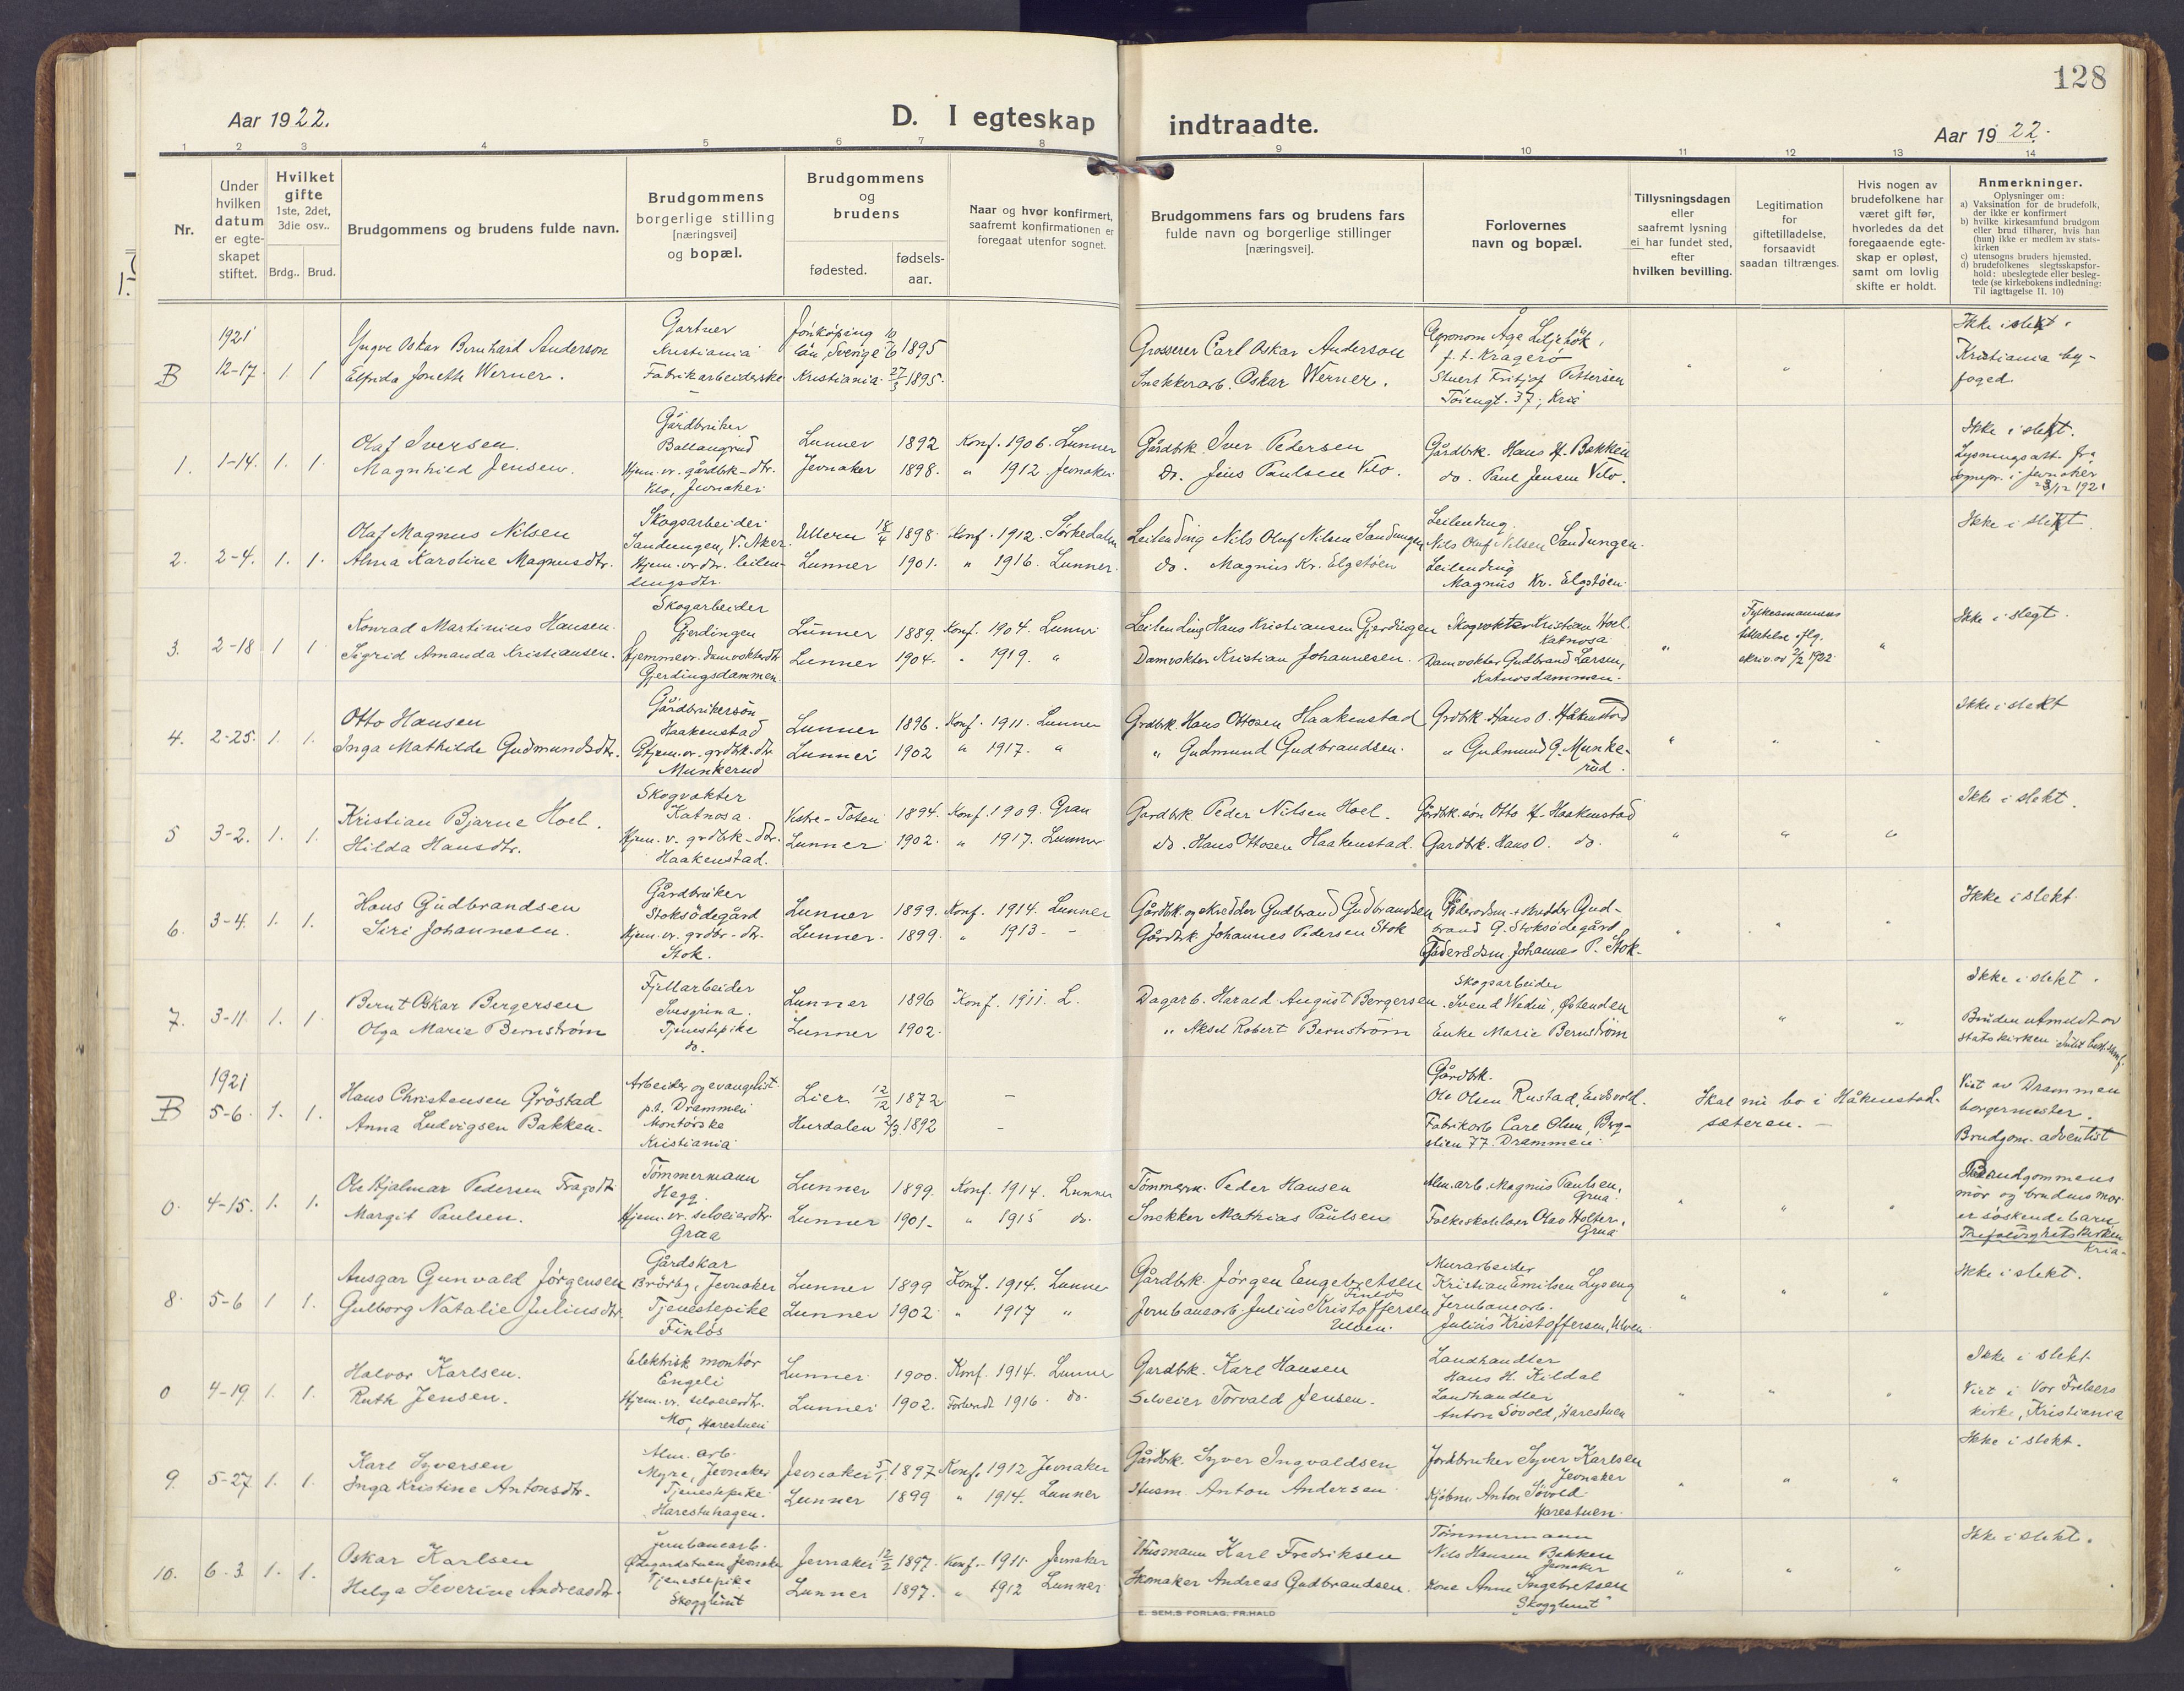 128
Aar 1922.
D. I egteskap indtraadte.
Aar 1922.
1 2 3 4 5 6 7 8 9 10 11 12 13 14
Nr.
Under hvilken datum er egteskapet stiftet.
Hvilket gifte 1ste, 2det, 3die osv..
Brdg.. Brud.
Brudgommens og brudens fulde navn.
Brudgommens borgerlige stilling [næringsvei] og bopæl.
Brudgommens og brudens
fødested.
fødsels-aar.
Naar og hvor konfirmert, saafremt konfirmationen er foregaat utenfor sognet.
Brudgommens fars og brudens fars fulde navn og borgerlige stillinger [næringsvei].
Forlovernes navn og bopæl.
Tillysningsdagen eller saafremt lysning ei har fundet sted, efter hvilken bevilling.
Legitimation for giftetilladelse, forsaavidt saadan tiltrænges.
Hvis nogen av brudefolkene har været gift før, hvorledes da det foregaaende egteskap er opløst, samt om lovlig skifte er holdt.
Anmerkninger.
Oplysninger om:
a) Vaksination for de brudefolk, der ikke er konfirmert
b) hvilke kirkesamfund brudgom eller brud tilhører, hvis han (hun) ikke er medlem av statskirken
c) utensogns bruders hjemsted.
d) brudefolkenes slegtsskapsforhold: ubeslegtede eller beslegtede (se kirkebokens indledning: Til iagttagelse II. 10)
B 1921 12-17. 1. 1
Yngve Oskar Bernhard Anderson
Elfrida Jonette Werner.
Gartner
Kristiania
Fabrikarbeiderske
Jönköping 10/6 1895
län, Sverige
Kristiania 27/3 1895.
Grosserer Carl Oskar Anderson
Snekkerarb. Oskar Werner.
Agronom Åge Liljehök,
f. t. Kragerø
Stuert Fritjof Pettersen
Töiengt. 37, Kria
Ikke i slekt.
Kristiania by-
foged.
1. 1-14. 1. 1.
Olaf Iversen
Magnhild Jensen.
Gårdbruker
Ballangrud
Hjem. vr. gårdbrk-dtr.
Klo, Jevnaker
Lunner 1892 Konf. 1906. Lunner
Jevnaker 1898. " 1912. Jevnaker
Gårdbrk. Iver Pedersen
Do. Jens Paulsen Vilo.
Gårdbrk. Hans H. Bakken
do. Paul Jensen Vilo.
Ikke i slekt.
Lysningsatt. fra
sognepr. i Jevnaker
28/12 1921
2. 2-4. 1. 1.
Olaf Magnus Nilsen
Alma Karoline Magnusdtr.
Skogsarbeider
Sandungen, V. Aker.
Hjem. vr dtr. leilen-
dingsdtr.
Ullern 18/4 1898. Konf. 1912. Sørkedalen
Lunner 1901. " 1916. Lunner.
Leilending Nils Oluf Nilsen Sandungen
Do. Magnus Kr. Elgstøen
Leilending
Nils Oluf Nilsen Sandungen.
Leilending
Magnus Kr. Elgstøen.
Ikke i slekt.
3. 2-18 1 1
Konrad Martinius Hansen.
Sigrid Amanda Kristiansen.
Skogarbeider
Gjerdingen
Hjemmevr. damvokterdtr
Gjerdingsdammen
Lunner 1889. Konf. 1904. Lunner
Lunner 1904. " 1919. "
Leilending Hans Kristiansen Gjerdingen
Damvokter Kristian Johannesen.
Skogvokter Kristian Hoel.
Katnosa
Damvokter Gudbrand Larsen,
Katnosdammen.
Fylkesmannens
tillatelse iflg.
skriv. av 2/2 1922
Ikke i slegt.
4. 2-25. 1. 1.
Otto Hansen
Inga Mathilde Gudmundsdtr.
Gårdbrukersøn
Haakenstad
Hjem. vr. grdbk. dtr.
Munkerud
Lunner 1896. Konf. 1911. Lunner
Lunner 1902 " 1917. "
Grdbrk. Hans Ottosen Haakenstad
" Gudmund Gudbrandsen.
Grdbrk. Hans O. Håkenstad
" Gudmund G. Munke-
rud.
Ikke i slekt
5 3-2. 1. 1.
Kristian Bjarne Hoel.
Hilda Hansdtr.
Skogvokter
Katnosa.
Hjem. v. grdbrk-dtr.
Haakenstad.
Vestre-Toten 1894. Konf. 1909. Gran
Lunner 1902. " 1917. Lunner
Gardbrk Peder Nilsen Hoel.
Do. Hans Ottosen Haakenstad.
Gårdbrk. søn Otto H. Haakenstad
Gardbrk. Hans O. do.
Ikke i slekt.
6. 3-4. 1. 1.
Hans Gudbrandsen
Siri Johannesen.
Gårdbruker
Stoksödegård
Hjem. vr. grdbr-dtr.
Stok.
Lunner 1899. Konf. 1914. Lunner
Lunner. 1899. " 1913. -
Gårdbk. og skredder Gudbrand Gudbrandsen
Gårdbrk. Johannes Pedersen Stok
Föderådsm. + skredder Gud-
brand G. Stoksödegård
Föderådsm. Johannes P. Stok.
Ikke i slekt.
7. 3-11. 1. 1
Bernt Oskar Bergersen
Olga Marie Bernström
Fjellarbeider
Svesgrina.
Tjenestepike
do.
Lunner 1896 Konf. 1911. L.
Lunner 1902.
Dagarb. Harald August Bergersen
" Aksel Robert Bernström
Skogsarbeider
Svend Wedin, Østenden
Enke Marie Bernström
Ikke i slekt.
Bruden utmeldt av
statskirken
B 1921 5-6. 1. 1.
Hans Christensen Gröstad
Anna Ludvigsen Bakken.
Arbeider og evangelist
p.t. Drammen
Montørske
Kristiania
Lier. 12/12 1872 -
Hurdalen 2/3 1892 -
Gårdbk.
Ole Olsen Rustad, Eidsvold.
Fabrikarb Carl Olsen, Berg-
slien 77. Drammen
Skal nu bo i Håkenstad-
sæteren.
Viet av Drammen
borgermester.
Brudgom. adventist
0. 4-15. 1. 1.
Ole Hjalmar Pedersen Fragodt
Margit Paulsen.
Tømmermann
Hegg.
Hjem. vr. selveierdtr.
Grua
Lunner 1899. Konf. 1914. Lunner
Lunner 1901. " 1915 do.
Tømmerm. Peder Hansen
Snekker Mathias Paulsen
Alm. arb. Magnus Paulsen,
Grua.
Folkeskolelærer Olav Holter,
Grua
Brudgommens
mor og brudens mor
er søskendebarn
Trefoldighetskirken
Kria.
8. 5-6 1 1.
Ansgar Gunvald Jørgensen
Gulborg Natalie Juliusdtr.
Gårdskar
Brörby, Jevnaker
Tjenestepike
Finlös
Lunner 1899 Konf. 1914. Lunner
Lunner 1902. " 1917 "
Gårdbk. Jørgen Engebretsen
Finlös
Jernbanearb. Julius Kristoffersen
Ulven.
Murarbeider
Kristian Emilsen Lyseng
Jernbanearb.
Julius Kristoffersen, Ulven
Ikke i slekt.
0 4-19. 1. 1.
Halvor Karlsen.
Ruth Jensen.
Elektrisk montör
Engeli
Hjem. vr. selveierdtr.
Mo, Harestuen
Lunner 1900. Konf. 1914. Lunner
Lunner 1902. Forberedt 1916. do.
Gardbk. Karl Hansen
Selveier Torvald Jensen.
Landhandler
Hans H. Kildal
Landhandler
Anton Sövold, Harestuen
Ikke i slekt.
Viet i Vor Frelsers
kirke, Kristiania
9. 5-27 1. 1.
Karl Syversen
Inga Kristine Antonsdtr.
Alm. arb.
Myre, Jevnaker
Tjenestepike
Harestuhagen.
Jevnaker 5/1 1897 Konf. 1912 Jevnaker
Lunner 1899 " 1914. Lunner
Gårdbk. Syver Ingvaldsen
Husm. Anton Andersen
Jordbruker Syver Karlsen
Jevnaker
Kjöbm. Anton Sövold
Harestuen.
Ikke i slekt.
10. 6-3. 1. 1.
Oskar Karlsen
Helga Severine Andreasdtr.
Jernbanearb.
Jevnaker
Tjenestepike
Skogglimt
Jevnaker 12/2 1897. Konf. 1911. Jevnaker
Lunner 1897. " 1912 Lunner
Husmann Karl Fredriksen
Skomaker Andreas Gudbrandsen.
Tømmermann
Nils Hansen Bakken
Jevnaker
Kone Anne Ingebretsen
"Skogglimt"
Ikke i slekt.
E. SEM.S FORLAG, FR.HALD